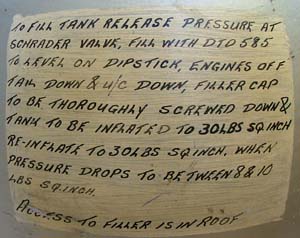 TO FILL TANK RELEASE PRESSURE AT
SCHRADER VALVE, FILL WITH DTD 585
TO LEVEL ON DIPSTICK, ENGINES OFF
TAIL DOWN & U/C DOWN, FILLER CAP
TO BE THOROUGHLY SCREWED DOWN &
TANK TO BE INFLATED TO 30LBS SQ.INCH
RE-INFLATE TO 30LBS SQ.INCH. WHEN
PRESSURE DROPS TO BETWEEN 8 & 10
LBS SQ.INCH.
ACCESS TO FILLER IS IN ROOF